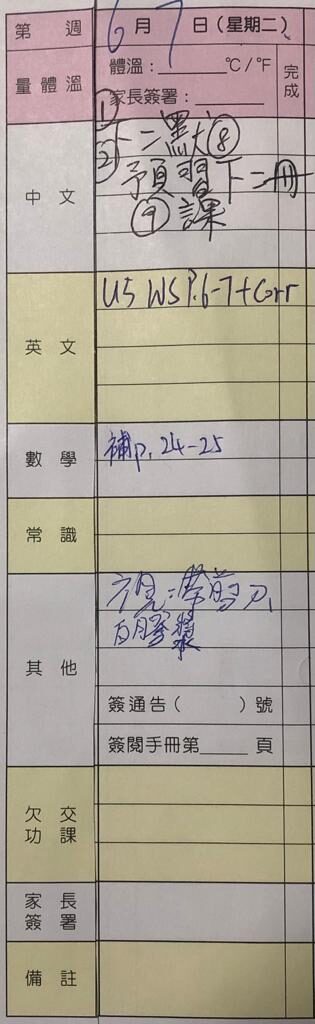 第 週 6月7日(星期二)
量體溫 體溫:______°C/°F 完成
家長簽署:______
中文 ① 下二默⑧
② 預習下二冊
⑨課
英文 U5 WS P.6-7+Corr
數學 補p.24-25
常識
其他 視:帶剪刀
白膠漿
簽通告( )號
簽閱手冊第____頁
欠交功課
家長簽署
備註